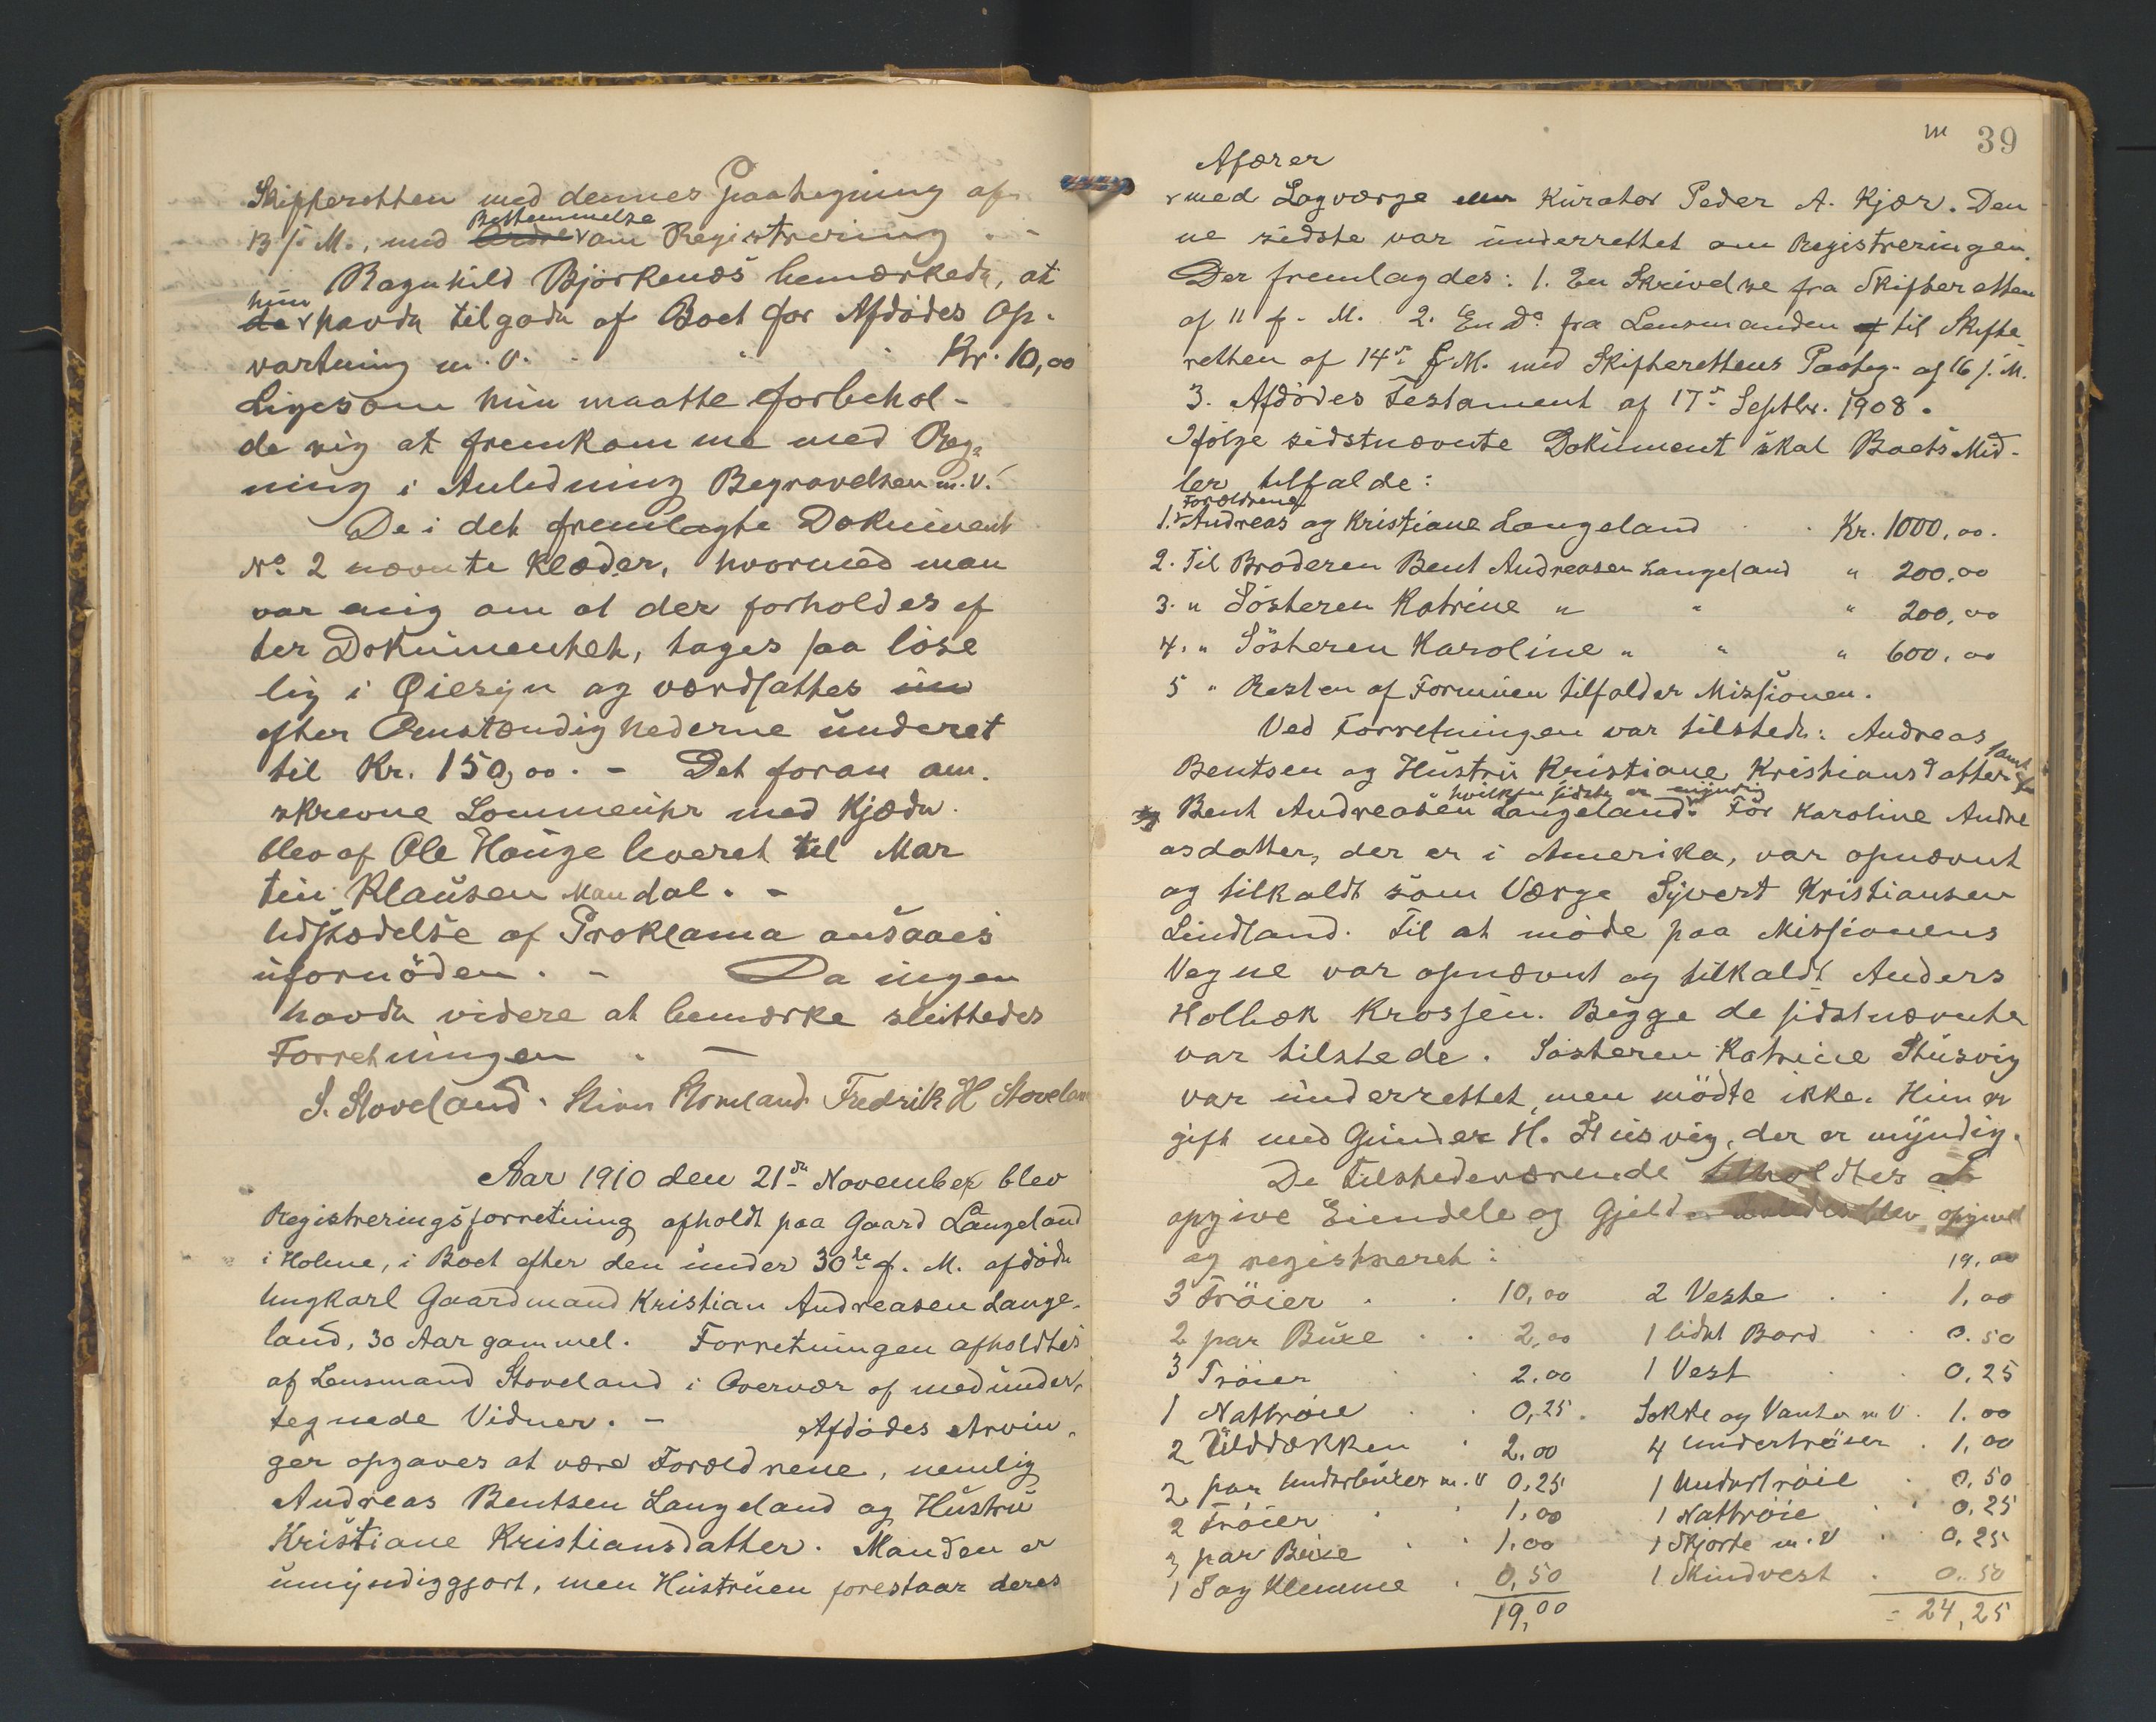 Skifteretten med dennes Paategning af
13 f. M., med Bestemmelse om Registrering . -
Ragnhild Björkenæs bemærkede, at
hun havde tilgode af Boet for Afdödes Op-
vartning m.v. Kr. 10,00
Ligesom hun maatte forbehol-
de sig at fremkomme med Reg-
ning i Anledning Begravelsen m.v.
De i det fremlagte Dokument
No 2 nævnte Klæder, hvormed man
var enig om at der forholdes ef
ter Dokumentet, tages paa löse
lig i Öiesyn og værdsattes
efter Omstændighederne underet
til Kr. 150,00. - Det foran om-
skrevne Lommeuhr med Kjæde
blev af Ole Hauge leveret til Mar
tin Klausen Mandal. -
Udstædelse af Proklama ansaaes
ufornöden. - Da ingen
havde videre at bemærke sluttedes
Forretningen . -
S. Stoveland. Fredrik H Stoveland
Aar 1910 den 21de November blev
Registreringsforretning afholdt paa Gaard Langeland
i Holme, i Boet efter den under 30te f. M. afdöde
Ungkarl Gaardmand Kristian Andreasen Lange-
land, 30 Aar gammel. Forretningen afholdtes
af Lensmand Stoveland i Overvær af medunder-
tegnede Vidner. - Afdödes Arvin-
ger opgaves at være Forældrene, nemlig
Andreas Bentsen Langeland og Hustru
Kristiane Kristiansdatter. Manden er
umyndiggjort, men Hustruen forestaar deres
39
Afærer
med Lagværge Kurator Peder A. Kjær. Den
ne sidste var underrettet om Registreringen.
Der fremlagdes: 1. En Skrivelse fra Skifteretten
af 11 f. M. 2. En Do fra Lensmanden til Skifte-
retten af 14de f. M. med Skifterettens Paateg. af 16 f. M.
3. Afdödes Testament af 17de Septbr. 1908.
Ifölge sidstnævnte Dokument skal Boets Mid-
ler tilfalde:
1. Forældrene Andreas og Kristiane Langeland . . Kr. 1000,00.
2. Til Broderen Bent Andreasen Langeland " 200,00
3. " Sösteren Katrine " " " 200,00
4. " Sösteren Karoline " " " 600,00
5 " Resten af Formuen tilfalder Missionen.
Ved Forretningen var tilstede: Andreas
Bentsen og Hustru Kristiane Kristiansdatter samt
Bent Andreasen Langeland. hvilken sidste er myndig For Karoline Andre
asdatter, der er i Amerika, var opnævnt
og tilkaldt som Værge Syvert Kristiansen
Lindland. Til at möde paa Missionens
Vegne var opnævnt og tilkaldt Anders
Holbæk Krossen. Begge de sidstnævnte
var tilstede. Sösteren Katrine Stusvig
var underrettet, men mödte ikke. Hun er
gift med Gunder H. Stusvig, der er myndig.
De Tilstedeværende tilholdtes at
opgive Eiendele og Gjeld. Saaledes blev opgivet
og registreret: 19,00
3 Tröier . . 10,00 2 Veste . . 1,00
2 par Buxe . . 2,00 1 lidet Bord . . 0.50
3 Tröier . . 2.00 1 Vest . . 0,25
1 Nattröie . . 0,25. Sokke og Vanter m V. 1.00
2 Ulddækken . 2.00 4 undertröier . 1,00
2 par Underbuxer m.v 0,25 1 Undertröie . 0,50
2 Tröier . . 1,00 1 Nattröie . . 0,25
3 par Buxe . . 1.00 1 Skjorte m.v . 0,25
1 Sag Klemme . 0,50 1 Skindvest . 0.50
19,00 = 24,25